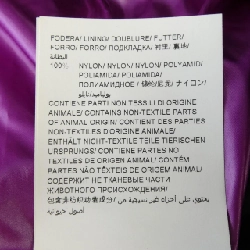 FODERA/ LINING/ DOUBLURE/ FUTTER/
FORRO/ FORRO/ ПОДКЛАДКА/ 衬里/ 裏地/
البطانة
100% NYLON/ NYLON/ NYLON/ POLYAMID/
POLIAMIDA/ POLIAMIDA/
ПОЛИАМИДНОЕ / 锦纶/尼龙/ ナイロン/
CONTIENE PARTI NON TESSILI DI ORIGINE
ANIMALE/ CONTAINS NON-TEXTILE PARTS
OF ANIMAL ORIGIN/ CONTIENT DES PARTIES
NON-TEXTILES D'ORIGINE ANIMALE/
ENTHÄLT NICHT-TEXTILE TEILE TIERISCHEN
URSPRUNGS/ CONTIENE PARTES NO
TEXTILES DE ORIGEN ANIMAL/ CONTÉM
PARTES NÃO TÊXTEIS DE ORIGEM ANIMAL/
СОДЕРЖИТ НЕТКАНЕВЫЕ ЧАСТИ
ЖИВОТНОГО ПРОИСХОЖДЕНИЯ/
يحتوي على أجزاء غير نسيجية من
أصول حيوانية